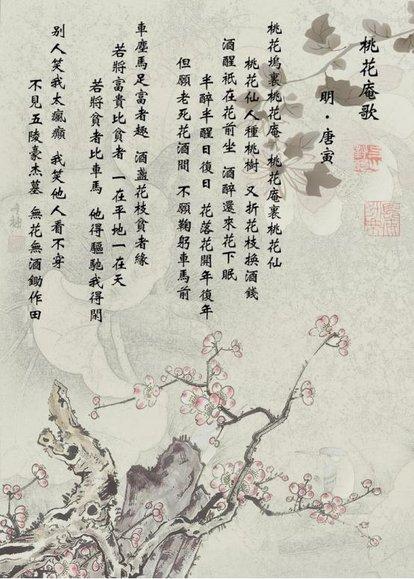 桃花庵歌
明·唐寅
桃花塢裏桃花庵 桃花庵裏桃花仙
桃花仙人種桃樹 又折花枝換酒錢
酒醒衹在花前坐 酒醉還來花下眠
半醉半醒日復日 花落花開年復年
但願老死花酒間 不願鞠躬車馬前
車塵馬足富者趣 酒盞花枝貧者緣
若將富貴比貧者 一在平地一在天
若將貧者比車馬 他得驅馳我得閑
別人笑我太瘋癲 我笑他人看不穿
不見五陵豪傑墓 無花無酒鋤作田